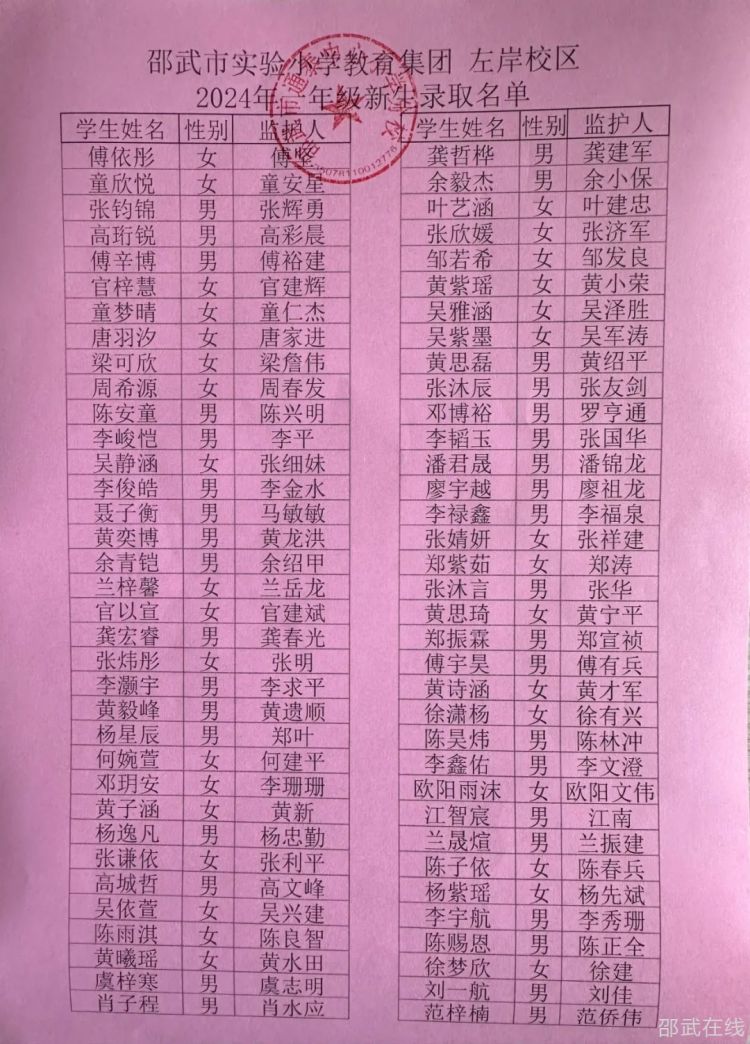 邵武市实验小学教育集团 左岸校区
2024年一年级新生录取名单
学生姓名 性别 监护人
傅依彤 女
童欣悦 女 童安星
张钧锦 男 张辉勇
高珩锐 男 高彩晨
傅辛博 男 傅裕建
官梓慧 女 官建辉
童梦晴 女 童仁杰
唐羽汐 女 唐家进
梁可欣 女 梁詹伟
周希源 女 周春发
陈安童 男 陈兴明
李峻恺 男 李平
吴静涵 女 张细妹
李俊皓 男 李金水
聂子衡 男 马敏敏
黄奕博 男 黄龙洪
余青铠 男 余绍甲
兰梓馨 女 兰岳龙
官以宣 女 官建斌
龚宏睿 男 龚春光
张炜彤 女 张明
李灏宇 男 李求平
黄毅峰 男 黄遗顺
杨星辰 男 郑叶
何婉萱 女 何建平
邓玥安 女 李珊珊
黄子涵 女 黄新
杨逸凡 男 杨忠勤
张谦依 女 张利平
高城哲 男 高文峰
吴依萱 女 吴兴建
陈雨淇 女 陈良智
黄曦瑶 女 黄水田
虞梓寒 男 虞志明
肖子程 男 肖水应
学生姓名 性别 监护人
龚哲桦 男 龚建军
余毅杰 男 余小保
叶艺涵 女 叶建忠
张欣媛 女 张济军
邹若希 女 邹发良
黄紫瑶 女 黄小荣
吴雅涵 女 吴泽胜
吴紫墨 女 吴军涛
黄思磊 男 黄绍平
张沐辰 男 张友剑
邓博裕 男 罗亨通
李韬玉 男 张国华
潘君晟 男 潘锦龙
廖宇越 男 廖祖龙
李禄鑫 男 李福泉
张婧妍 女 张祥建
郑紫茹 女 郑涛
张沐言 男 张华
黄思琦 女 黄宁平
郑振霖 男 郑宣祯
傅宇昊 男 傅有兵
黄诗涵 女 黄才军
徐潇杨 女 徐有兴
陈昊炜 男 陈林冲
李鑫佑 男 李文澄
欧阳雨沫 女 欧阳文伟
江智宸 男 江南
兰晟煊 男 兰振建
陈子依 女 陈春兵
杨紫瑶 女 杨先斌
李宇航 男 李秀珊
陈赐恩 男 陈正全
徐梦欣 女 徐建
刘一航 男 刘佳
范梓楠 男 范侨伟
邵武在线